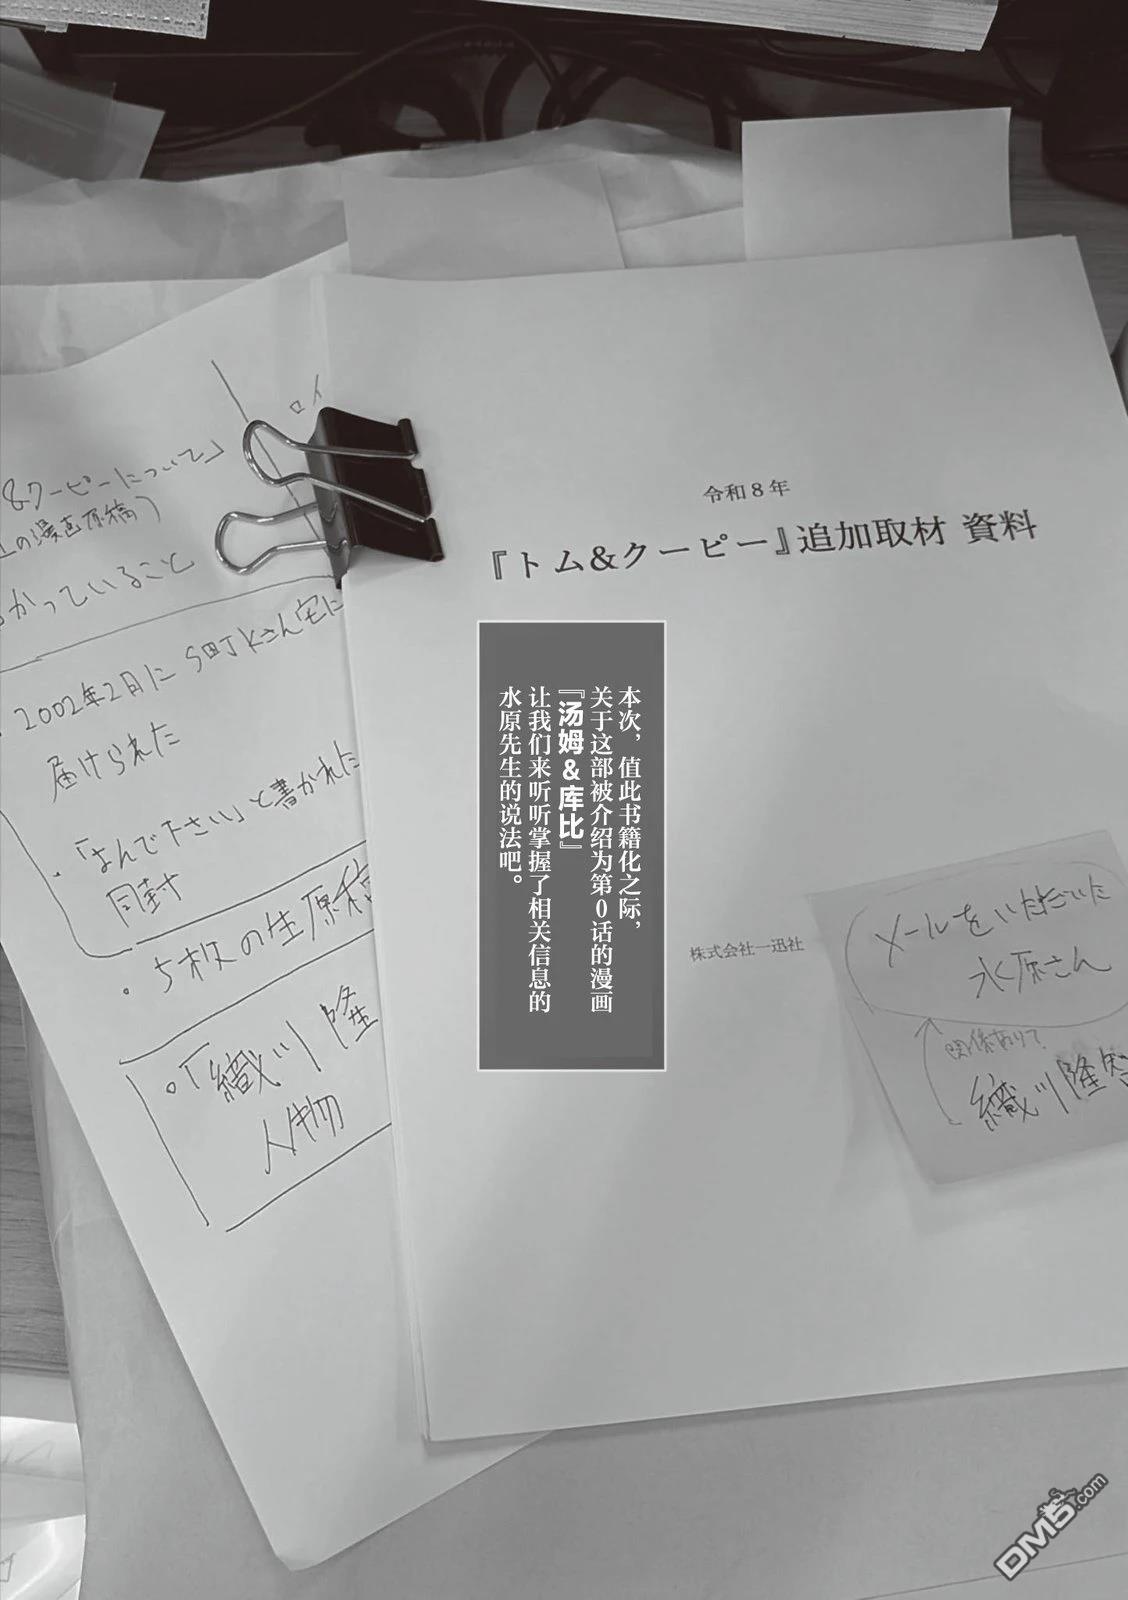 ロイ
&クーピーについて」
上の漫画原稿)
かっていること
2002年2月に SBJKさん宅に
届けられた
・「よんで下さい」と書かれた
同封
・5枚の生原稿
・「織川隆
人物
令和8年
『トム&クーピー』追加取材 資料
本次，值此书籍化之际，
关于这部被介绍为第0话的漫画
『汤姆&库比』
让我们来听听掌握了相关信息的
水原先生的说法吧。
株式会社一迅社
メールをいただいた
水原さん
関係ありて
織川隆
DM5.com